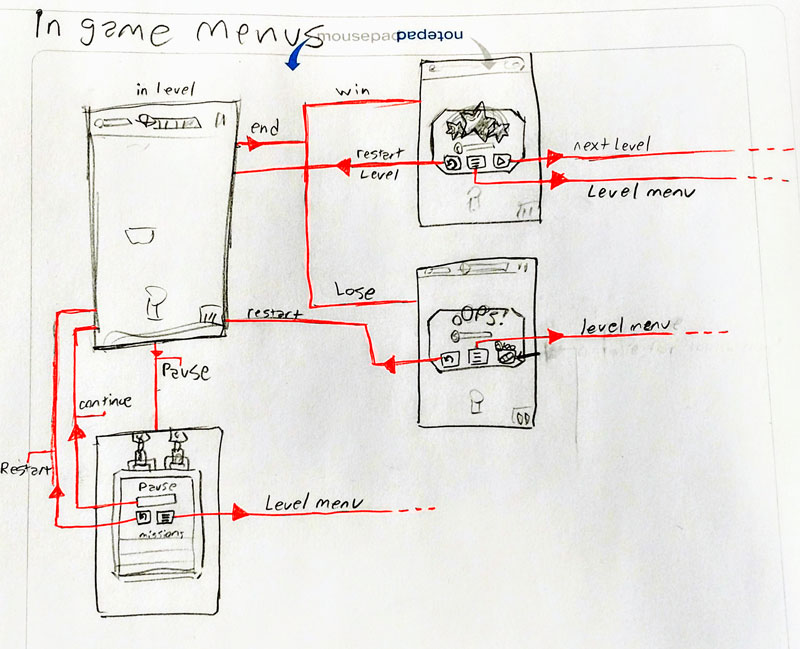 In game menus
mousepad
notepad
in level
win
end
restart
Level
next level
Level menu
Lose
OOPS!
restart
level menu
Pause
continue
Restart
Pause
missions
Level menu